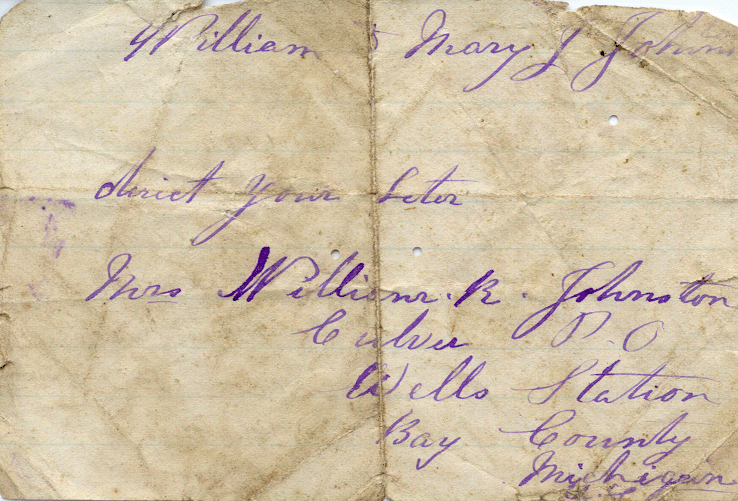 William & Mary J Johns
dirict your leter
Mrs William. R. Johnston
Culver P. O
Wells Station
Bay County
Michigan